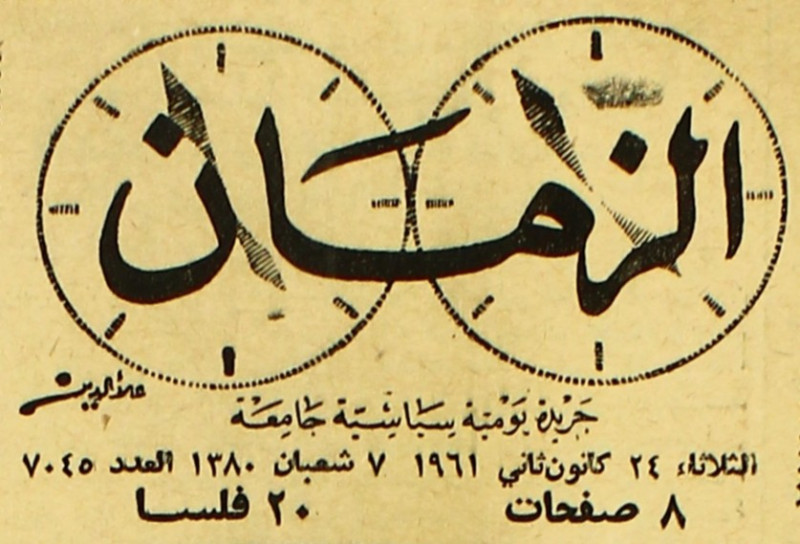 الزمان
علاء الدين
جريدة يومية سياسية جامعة
الثلاثاء ٢٤ كانون ثاني ١٩٦١ ٧ شعبان ١٣٨٠ العدد ٧٠٤٥
٨ صفحات ٢٠ فلسا